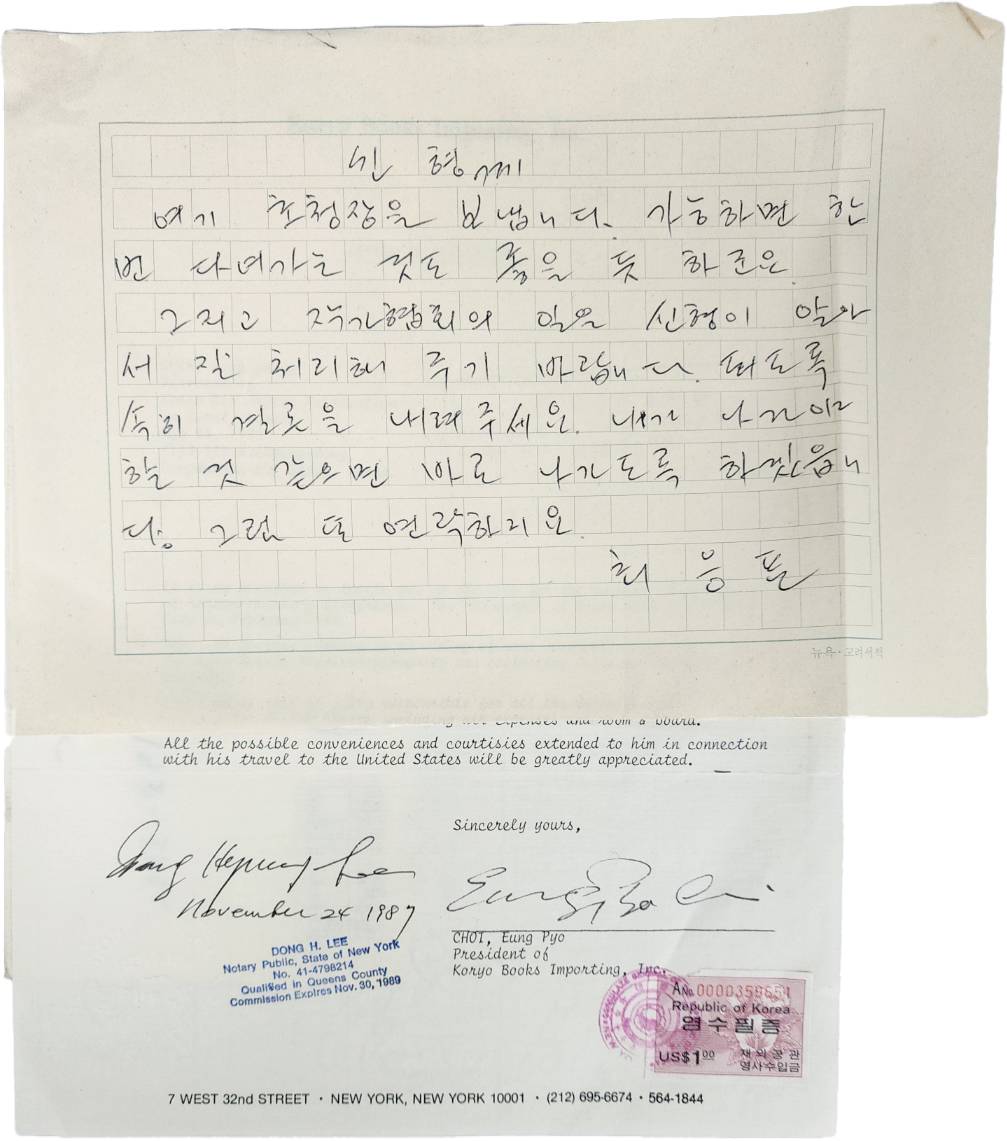 신 형께
여기 초청장을 보냅니다. 가능하면 한
번 다녀가는 것도 좋을 듯 하군요.
그리고 작가협회의 일은 신형이 알아
서 잘 처리해 주기 바랍니다. 되도록
속히 결론을 내려주세요. 내가 나가야
할 것 같으면 바로 나가도록 하겠읍니
다. 그럼 또 연락하리요.
최 응 표
뉴욕·고려서적
expenses and room & board.
All the possible conveniences and courtisies extended to him in connection
with his travel to the United States will be greatly appreciated.
Sincerely yours,
Dong Hyung Lee
November 24 1987
DONG H. LEE
Notary Public, State of New York
No. 41-4798214
Qualified in Queens County
Commission Expires Nov. 30, 1989
CHOI, Eung Pyo
President of
Koryo Books Importing, Inc.
ANo. 0000359654
Republic of Korea
영수필증
US$1.00
재외공관
영사수입금
7 WEST 32nd STREET · NEW YORK, NEW YORK 10001 · (212) 695-6674 · 564-1844